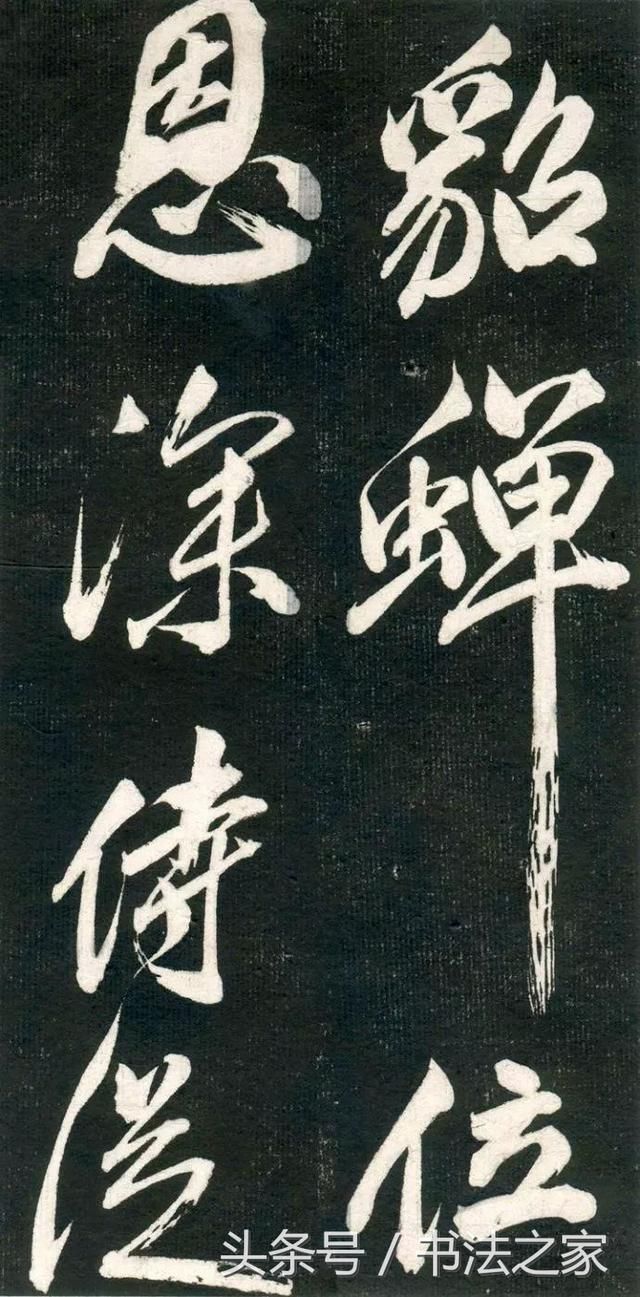 貂蟬位
恩深侍從
头条号 / 书法之家